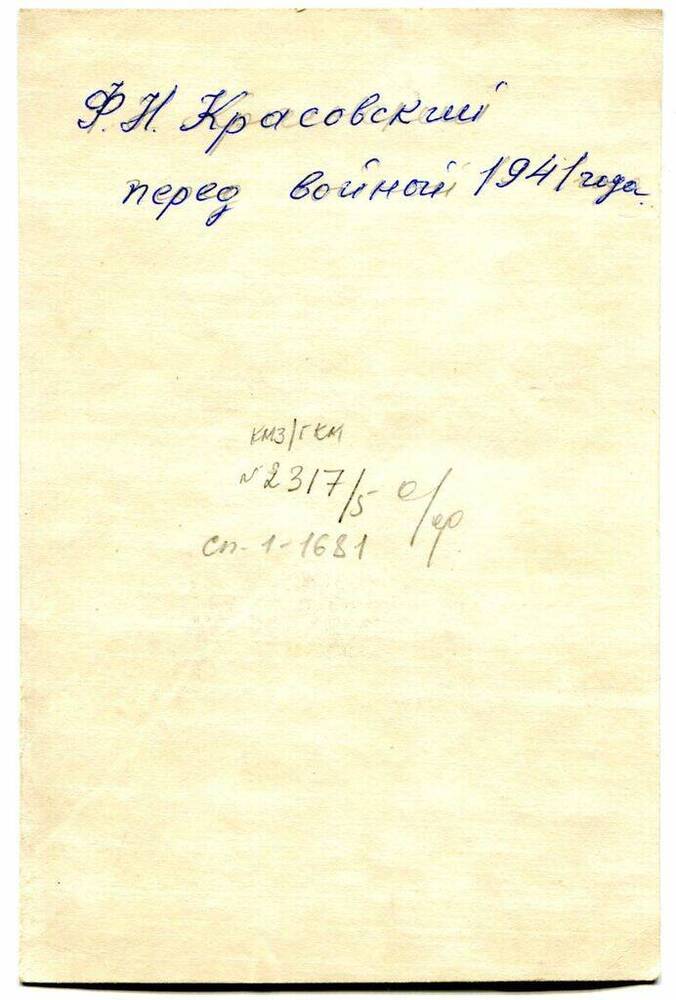 Ф.Н. Красовский
перед войной 1941 года.
КМЗ/ГКМ
№2317/5 О/ф
Сп-1-1681